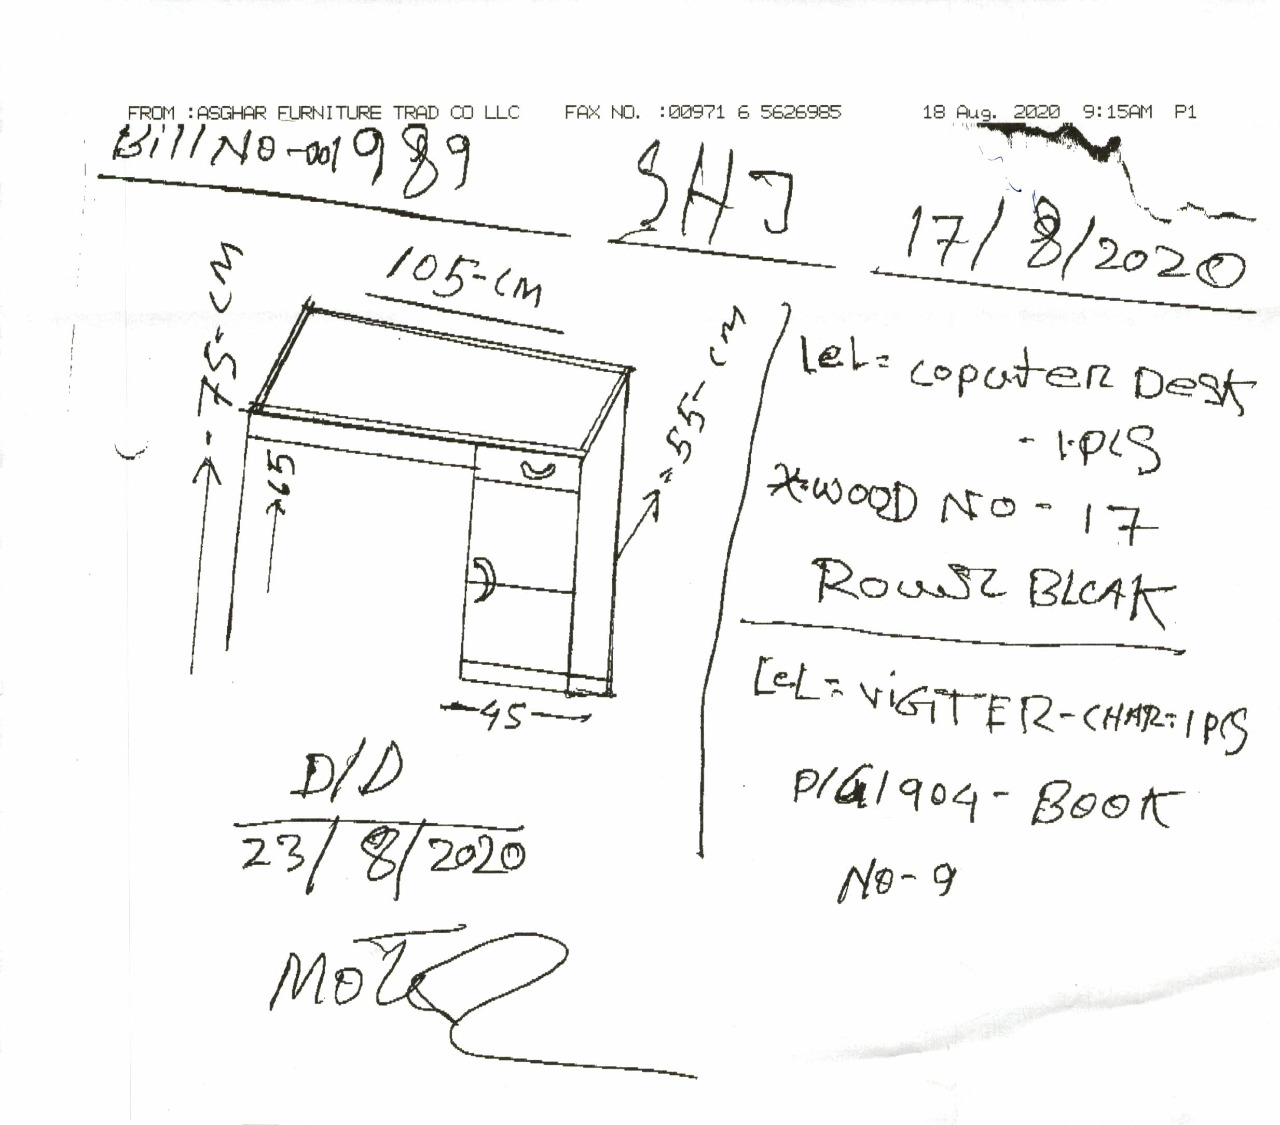 FROM :ASGHAR FURNITURE TRAD CO LLC FAX NO. :00971 6 5626985 18 Aug. 2020 9:15AM P1
Bill NO-001989
SHJ
17/8/2020
105-CM
75-CM
65
55-CM
45
LeL= coputer Desk
- 1.PCS
*WOOD NO - 17
BLCAK
LeL= ViGiTER-CHAR=1PCS
P/G1904- BOOK
NO-9
D/D
23/8/2020